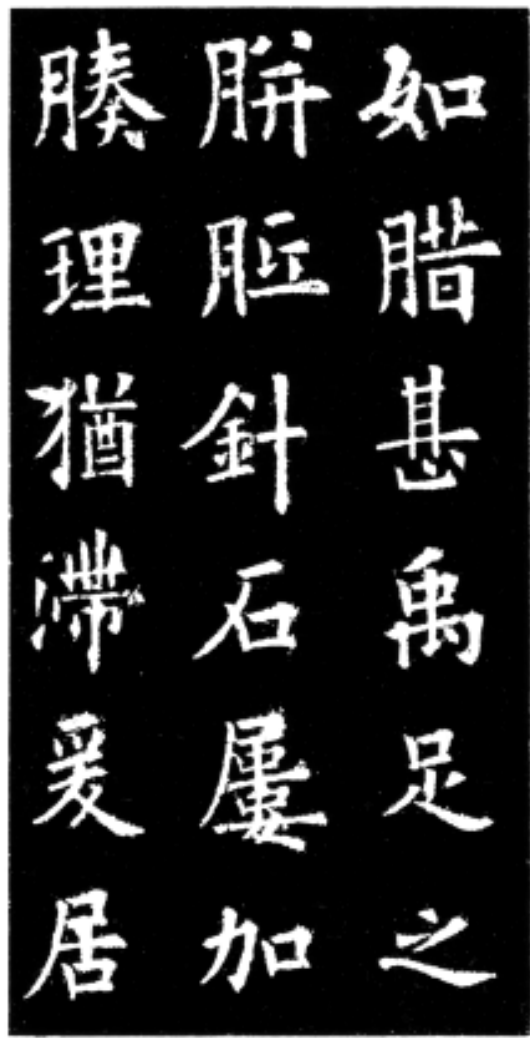 如腊甚禹足之
胼胝針石屢加
腠理猶滯爰居